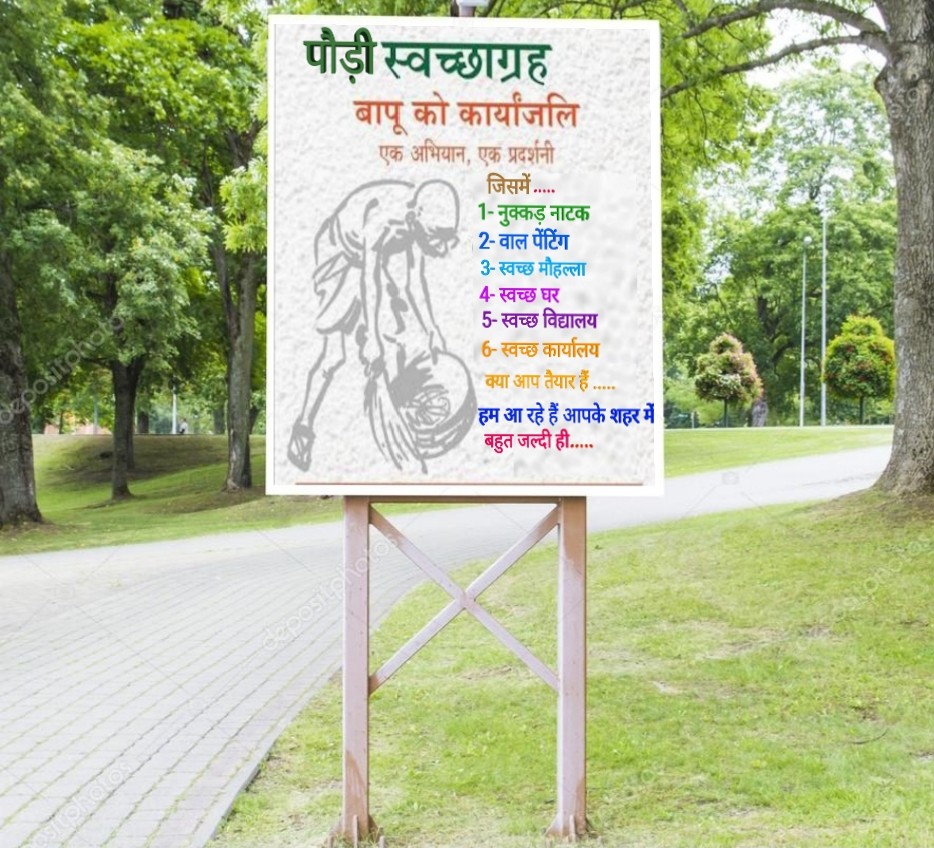 पौड़ी स्वच्छाग्रह
बापू को कार्यांजलि
एक अभियान, एक प्रदर्शनी
जिसमें .....
1- नुक्कड़ नाटक
2- वाल पेंटिंग
3- स्वच्छ मौहल्ला
4- स्वच्छ घर
5- स्वच्छ विद्यालय
6- स्वच्छ कार्यालय
क्या आप तैयार हैं .....
हम आ रहे हैं आपके शहर में
बहुत जल्दी ही.....
depositphotos
depositphotos
depositphotos